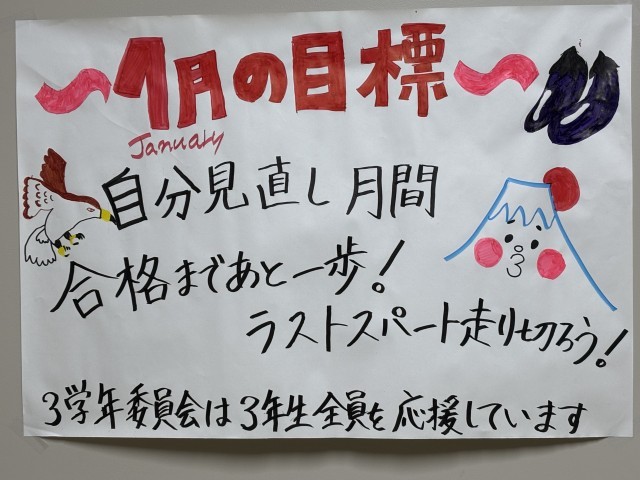 〜1月の目標〜
January
自分見直し月間
合格まであと一歩！
ラストスパート走り切ろう！
3学年委員会は3年生全員を応援しています